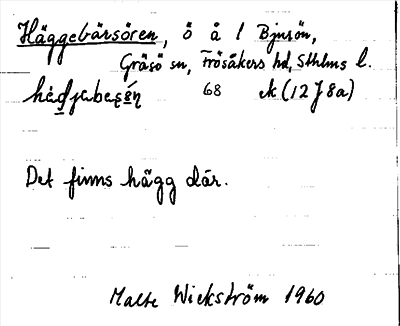 Häggebärsören, ö å l Bjurön,
Gräsö sn, Frösåkers hd, Sthlms l.
68 ek (12 J 8a)
Det finns hägg där.
Malte Wickström 1960